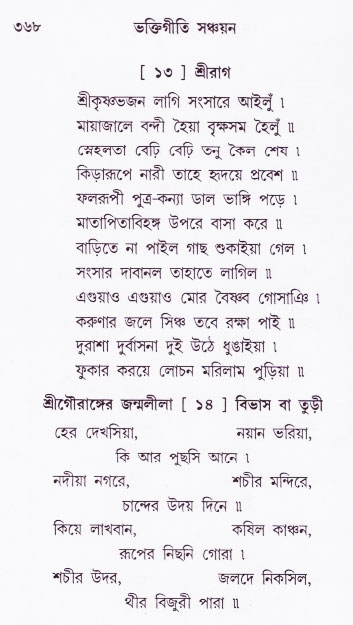 ৩৬৮ ভক্তিগীতি সঞ্চয়ন
[ ১৩ ] শ্রীরাগ
শ্রীকৃষ্ণভজন লাগি সংসারে আইলুঁ ।
মায়াজালে বন্দী হৈয়া বৃক্ষসম হৈলুঁ ॥
স্নেহলতা বেঢ়ি বেঢ়ি তনু কৈল শেষ ।
কিড়ারূপে নারী তাহে হৃদয়ে প্রবেশ ॥
ফলরূপী পুত্র-কন্যা ডাল ভাঙ্গি পড়ে ।
মাতাপিতাবিহঙ্গ উপরে বাসা করে ॥
বাড়িতে না পাইল গাছ শুকাইয়া গেল ।
সংসার দাবানল তাহাতে লাগিল ॥
এগুয়াও এগুয়াও মোর বৈষ্ণব গোসাঞি ।
করুণার জলে সিঞ্চ তবে রক্ষা পাই ॥
দুরাশা দুর্বাসনা দুই উঠে ধুঙাইয়া ।
ফুকার করয়ে লোচন মরিলাম পুড়িয়া ॥
শ্রীগৌরাঙ্গের জন্মলীলা [ ১৪ ] বিভাস বা তুড়ী
হের দেখসিয়া, নয়ান ভরিয়া,
কি আর পুছসি আনে ।
নদীয়া নগরে, শচীর মন্দিরে,
চান্দের উদয় দিনে ॥
কিয়ে লাখবান, কষিল কাঞ্চন,
রূপের নিছনি গোরা ।
শচীর উদর, জলদে নিকসিল,
থীর বিজুরী পারা ॥